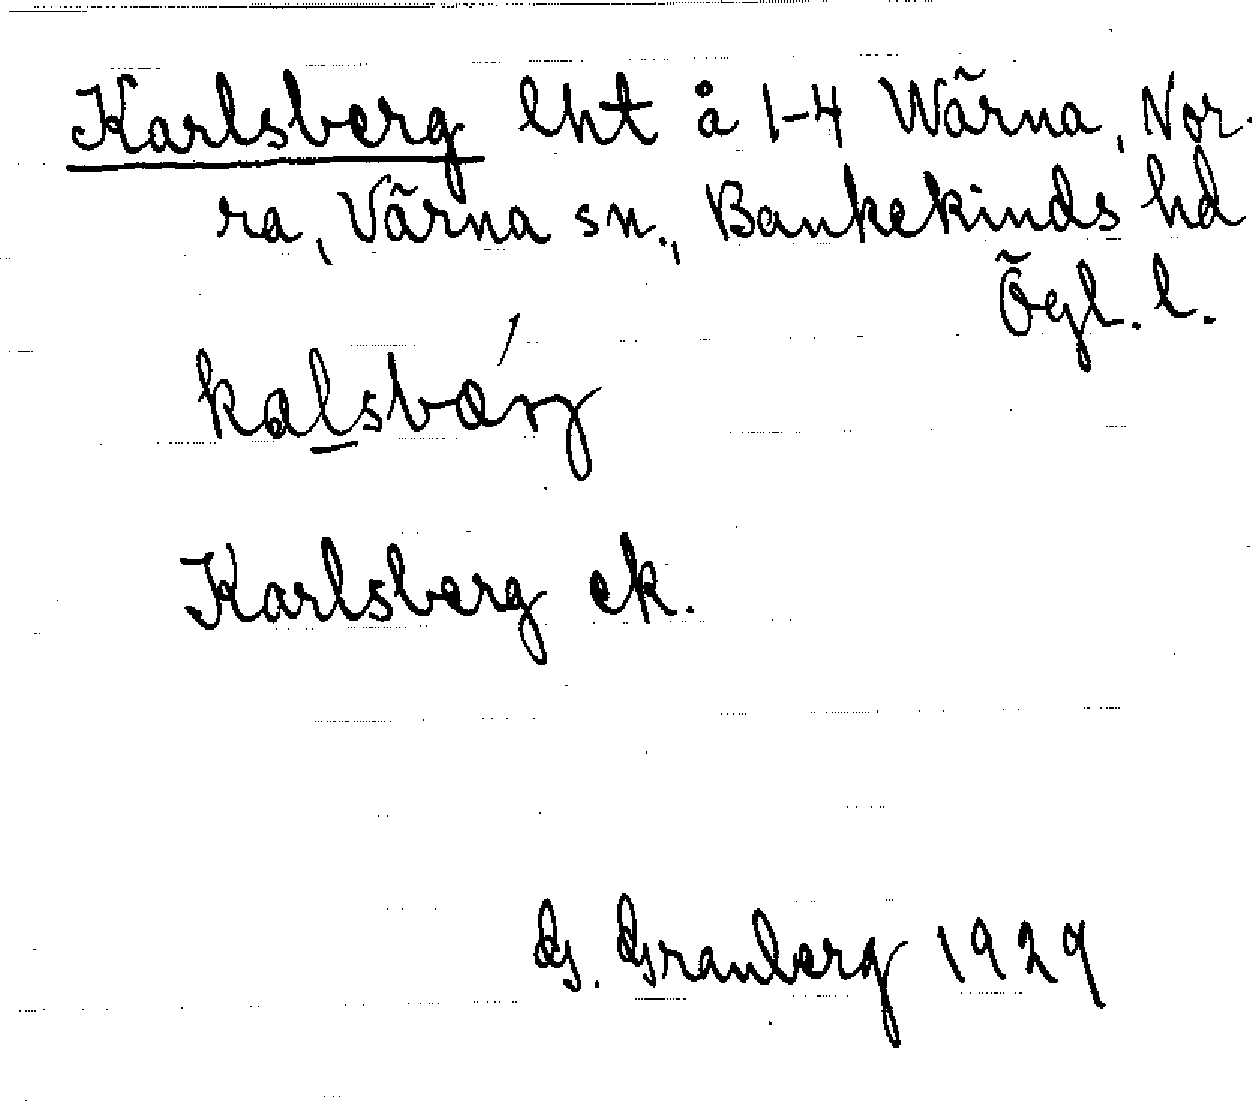 Karlsberg lht å 1-4 Wärna, Nor-
ra, Värna sn., Bankekinds hd
Ögl. l.
kalsbárj
Karlsberg ek.
G. Granberg 1929